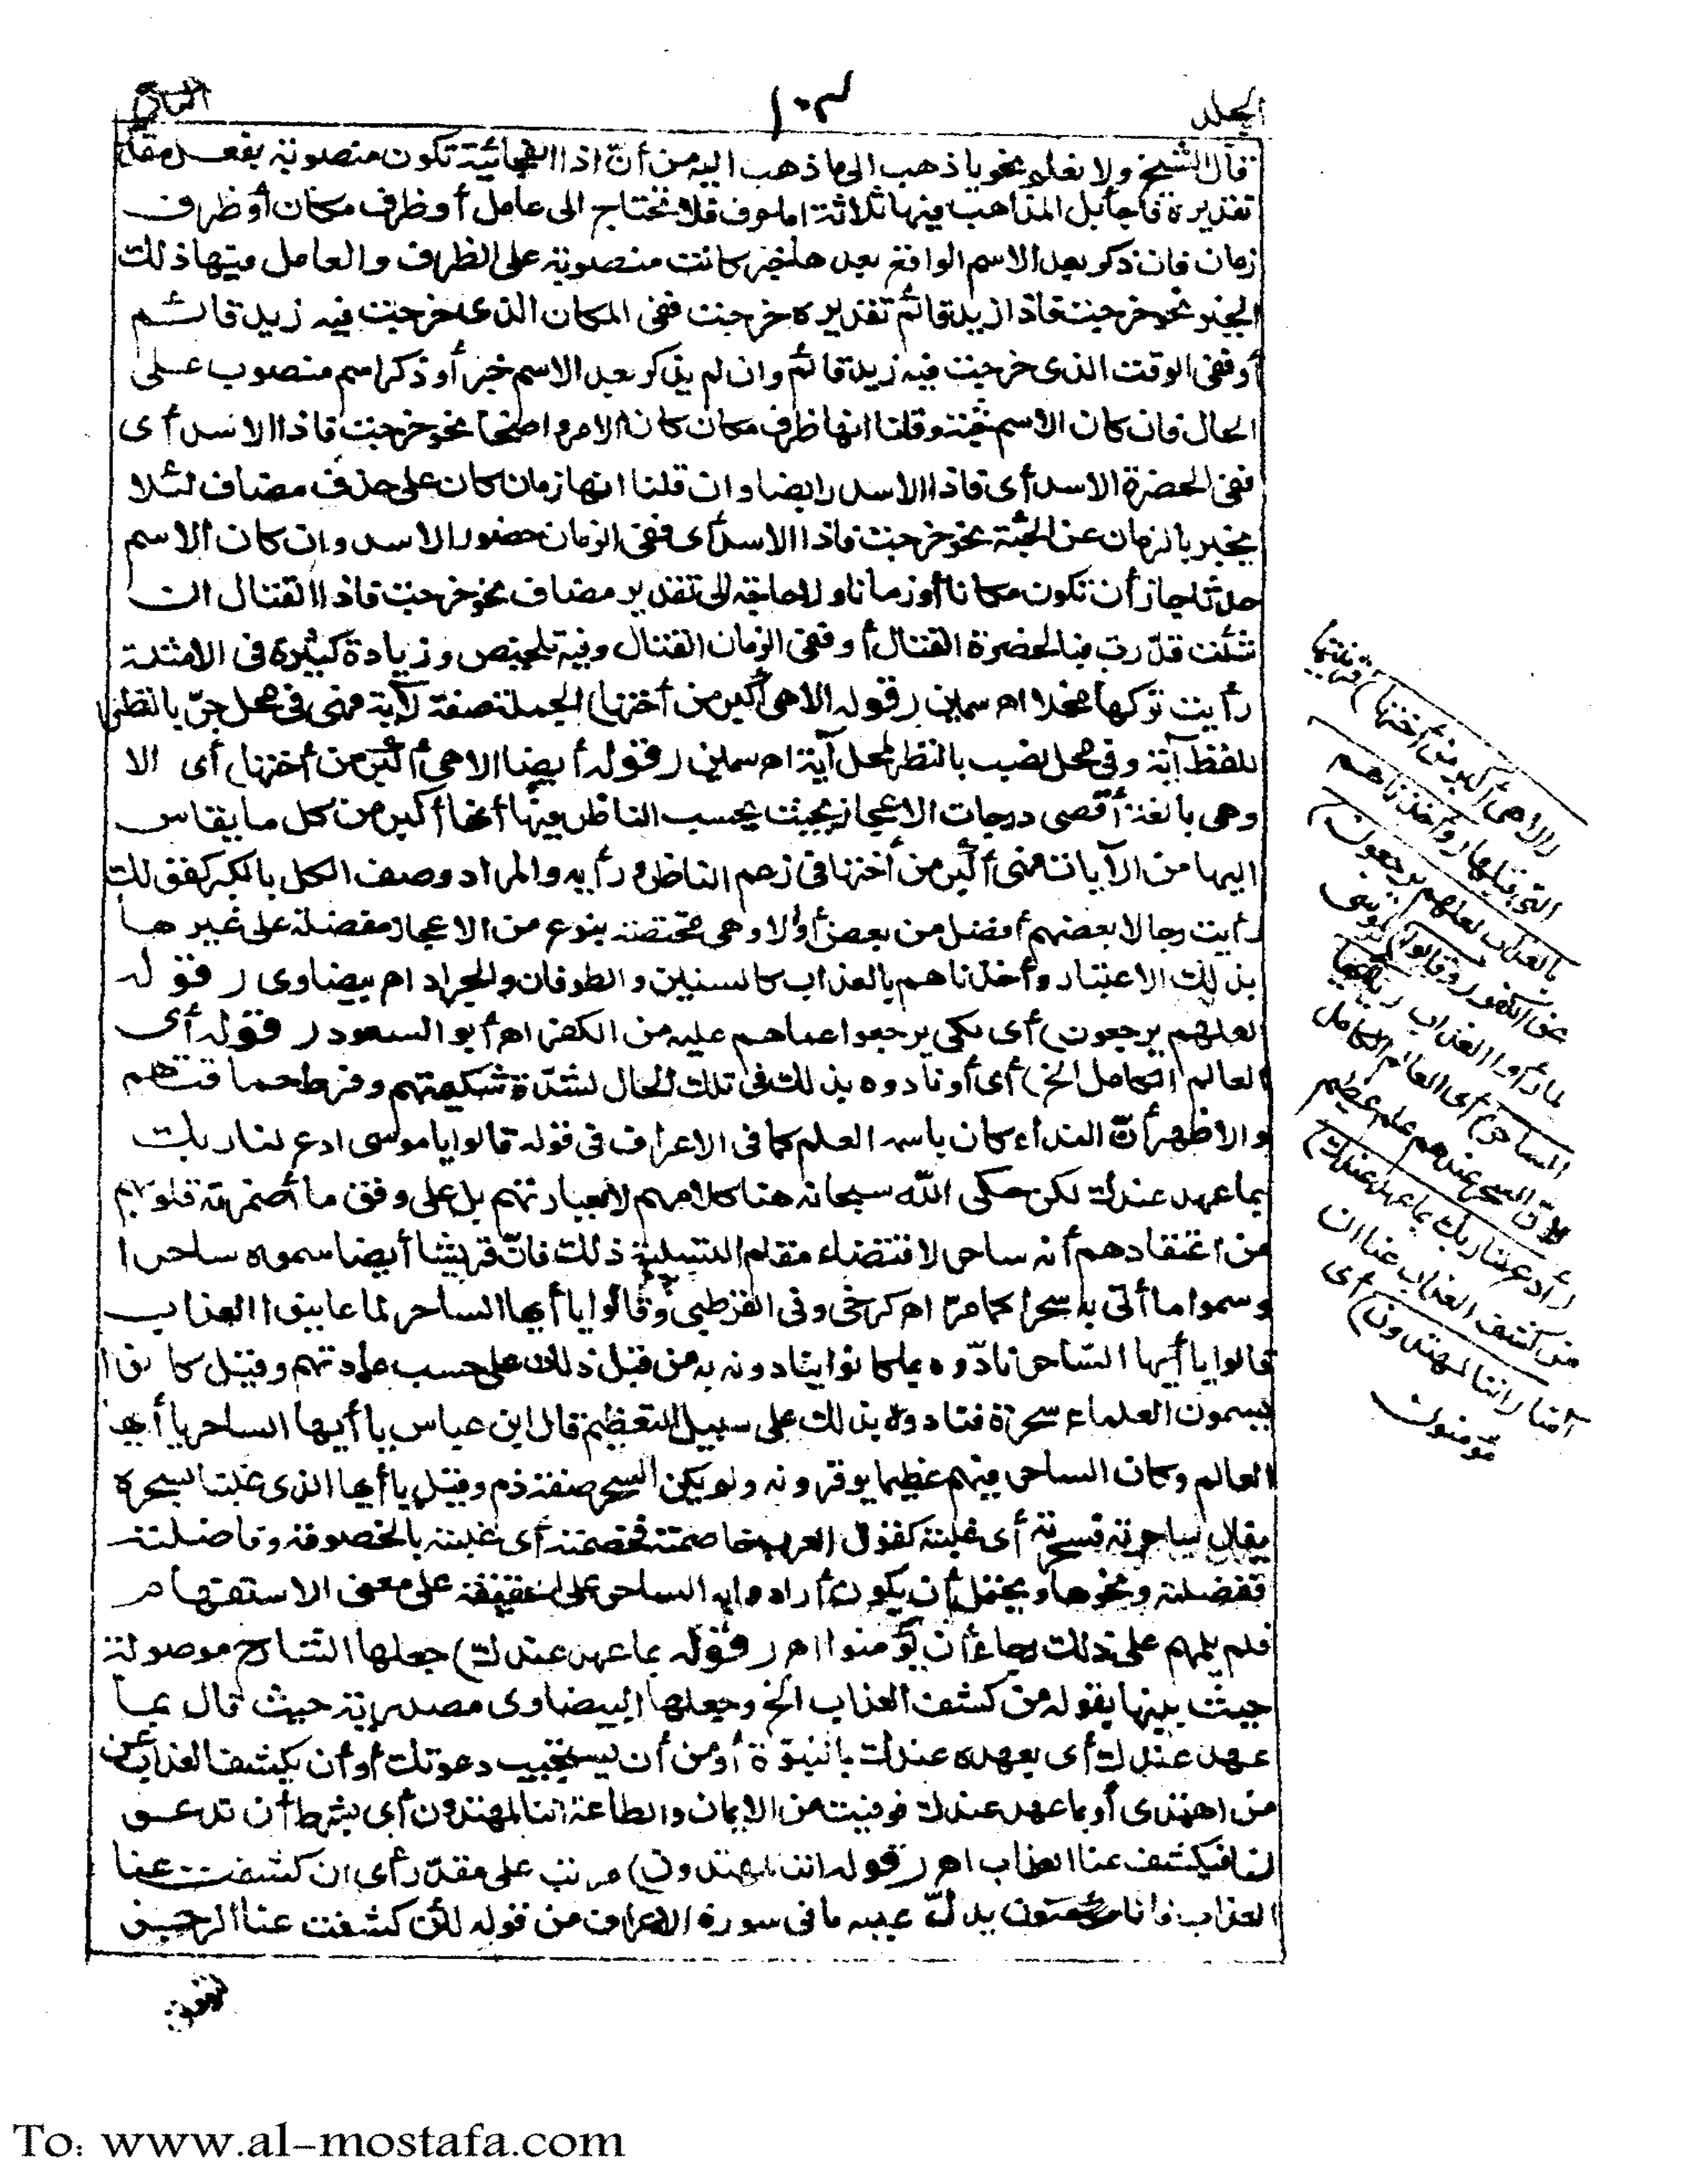 الجلد
١٠٣
قال الشيخ ولا نعلم نحويا ذهب الى ما ذهب اليه من أنّ اذا الفجائية تكون منصوبة بفعل مقدّر
تقديره فاجأ بل المذاهب فيها ثلاثة اما حرف فلا تحتاج الى عامل أو ظرف مكان أو ظرف
زمان فان ذكر بعد الاسم الواقع بعدها خبر كانت منصوبة على الظرف والعامل فيها ذلك
الخبر نحو خرجت فاذا زيد قائم تقديره خرجت ففى المكان الذى خرجت فيه زيد قائم
أو ففى الوقت الذى خرجت فيه زيد قائم وان لم يذكر بعد الاسم خبر أو ذكر اسم منصوب على
الحال فان كان الاسم جثة وقلنا انها ظرف مكان كان الامر واضحا نحو خرجت فاذا الاسد أى
ففى الحضرة الاسد أى فاذا الاسد رابضا وان قلنا انها زمان كان على حذف مضاف لئلا
يخبر بالزمان عن الجثة نحو خرجت فاذا الاسد أى ففى الزمان حضور الاسد وان كان الاسم
حدثا جاز أن تكون مكانا أو زمانا ولا حاجة الى تقدير مضاف نحو خرجت فاذا القتال ان
شئت قدّرت فبالحضرة القتال أو ففى الزمان القتال وفيه تلخيص وزيادة كثيرة فى الامثلة
رأيت تركها مخلا اه سمين (قوله الا هى أكبر من أختها) الجملة صفة لآية فهى فى محل جرّ بالنظر
للفظ آية وفى محل نصب بالنظر لمحل آية اه سمين (قوله أيضا الا هى أكبر من أختها) أى الا
وهى بالغة أقصى درجات الاعجاز بحيث يحسب الناظر فيها أنها أكبر من كل ما يقاس
اليها من الآيات فهى أكبر من أختها فى زعم الناظر ورأيه والمراد وصف الكل بالكبر كقولك
رأيت رجالا بعضهم أفضل من بعض أو الا وهى مختصة بنوع من الاعجاز مفضلة على غيرها
بذلك الاعتبار وأخذناهم بالعذاب كالسنين والطوفان والجراد اه بيضاوى (قوله
لعلهم يرجعون) أى لكى يرجعوا عما هم عليه من الكفر اه أبو السعود (قوله أى
العالم الكامل الخ) أى أو نادوه بذلك فى تلك الحال لشدّة شكيمتهم وفرط حماقتهم
والاظهر أنّ النداء كان باسمه العلم كما فى الاعراف فى قوله قالوا يا موسى ادع لنا ربك
بما عهد عندك لكن حكى الله سبحانه هنا كلامهم لا بعبارتهم بل على وفق ما أضمرته قلوبهم
من اعتقادهم أنه ساحر لاقتضاء مقام التسلية ذلك فانّ قريشا أيضا سموه ساحرا
وسموا ما أتى به سحرا كما مرّ اه كرخى وفى القرطبى وقالوا يا أيها الساحر لما عاينوا العذاب
قالوا يا أيها الساحر نادّوه بما كانوا ينادونه به من قبل ذلك على حسب عادتهم وقيل كانوا
يسمون العلماء سحرة فنادوه بذلك على سبيل التعظيم قال ابن عباس يا أيها الساحر يا أيها
العالم وكان الساحر فيهم عظيما يوقرونه ولم يكن السحر صفة ذم وقيل يا أيها الذى غلبنا بسحره
يقال ساحرته فسحرته أى غلبته كقول العرب خاصمته فخصمته أى غلبته بالخصومة وفاضلته
ففضلته ونحوها ويحتمل أن يكون أرادوا به الساحر على الحقيقة على معنى الاستفهام
فلم يلمهم على ذلك رجاء أن يؤمنوا اه (قوله بما عهد عندك) جعلها الشارح موصولة
حيث بينها بقوله من كشف العذاب الخ وجعلها البيضاوى مصدرية حيث قال بما
عهد عندك أى بعهده عندك بالنبوّة أو من أن يستجيب دعوتك أو أن يكشف العذاب عن
من اهتدى أو بما عهد عندك فوفيت من الايمان والطاعة اننا لمهتدون أى بشرط أن تدعو
لنا فيكشف عنا العذاب اه (قوله اننا لمهتدون) مرتب على مقدّر أى ان كشفت عنا
العذاب فاننا مؤمنون يدلّ عليه ما فى سورة الاعراف من قوله لئن كشفت عنا الرجز
(الا هى أكبر من أختها) قرينتها
التى قبلها (وأخذناهم
بالعذاب لعلهم يرجعون)
عن الكفر (وقالوا) لموسى
لما رأوا العذاب (يا أيها
الساحر) أى العالم الكامل
لانّ السحر عندهم علم عظيم
(ادع لنا ربك بما عهد عندك)
من كشف العذاب عنا ان
آمنا (اننا لمهتدون) أى
مؤمنون
To: www.al-mostafa.com